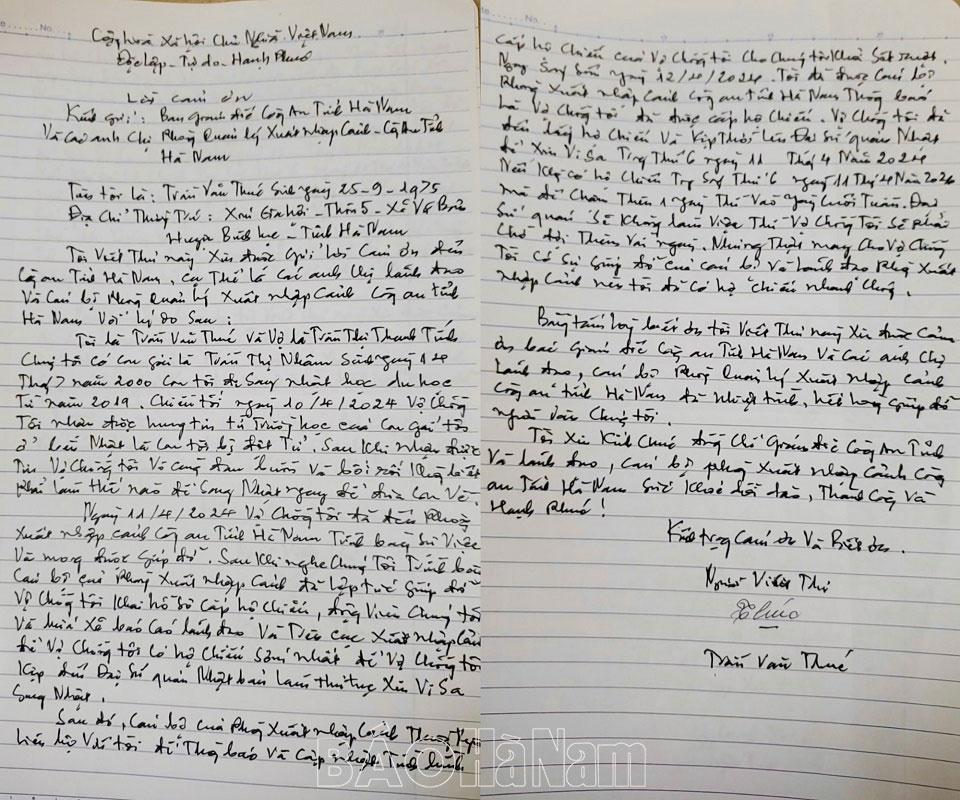 Cộng hoà Xã hội Chủ Nghĩa Việt Nam
Độc lập - Tự do - Hạnh Phúc
Lời cảm ơn
Kính gửi: Ban giám đốc Công An Tỉnh Hà Nam
Và các anh Chị Phòng Quản lý Xuất Nhập Cảnh - Công An Tỉnh
Hà Nam
Tên tôi là: Trần Văn Thuế Sinh ngày 25-9-1975
Địa Chỉ Thường Trú: Xóm Gia hội - Thôn 5 - Xã Vũ Bản
Huyện Bình Lục - Tỉnh Hà Nam
Tôi Viết Thư này Xin được Gửi lời Cảm ơn đến
Công an Tỉnh Hà Nam, Cụ Thể là các anh Chị lãnh đạo
Và Cán bộ Phòng Quản lý Xuất nhập Cảnh Công an tỉnh
Hà Nam Với lý do Sau:
Tôi là Trần Văn Thuế Và Vợ là Trần Thị Thanh Tính
Chúng tôi có Con gái là Trần Thị Nhâm Sinh ngày 14
Tháng 7 năm 2000 Con tôi đi Sang nhật học du học
Từ năm 2019. Chiều tối ngày 10/4/2024 Vợ Chồng
Tôi nhận được hung tin từ Trường học của Con gái tôi
ở bên Nhật là Con tôi bị đột Tử. Sau Khi nhận được
Tin Vợ Chồng tôi Vô cùng đau buồn Và bối rối Không biết
Phải làm thế nào để Sang Nhật ngay để đưa Con Về
Ngày 11/4/2024 Vợ Chồng tôi đã đến Phòng
Xuất nhập cảnh Công an Tỉnh Hà Nam Trình bày Sự Việc
Và mong được giúp đỡ. Sau Khi nghe Chúng Tôi Trình bày
Cán bộ của Phòng Xuất nhập Cảnh đã lập tức giúp đỡ
Vợ Chồng tôi Khai hồ sơ Cấp hộ Chiếu, động Viên Chúng tôi
Và báo Cáo lãnh đạo Và Cục Xuất Nhập Cảnh
để Vợ Chồng tôi Có hộ Chiếu Sớm nhất để Vợ Chồng tôi
Kịp đến Đại Sứ quán Nhật bản làm thủ tục Xin Vi Sa
Sang Nhật.
Sau đó, Cán bộ của Phòng Xuất nhập Cảnh Thường
liên hệ Với tôi để Thông báo Và Cập nhật Tình hình
cấp hộ Chiếu của Vợ Chồng tôi Cho Chúng tôi
Ngay Sáng Sớm ngày 12/4/2024. Tôi đã được Cán bộ
Phòng Xuất nhập Cảnh Công an tỉnh Hà Nam Thông báo
là Vợ Chồng tôi đã được cấp hộ Chiếu. Vợ Chồng tôi đã
đến lấy hộ Chiếu Và Kịp Thời lên Đại Sứ quán Nhật
để Xin Vi Sa Trong Thứ 6 ngày 11 Tháng 4 Năm 2024
Nếu Không có hộ Chiếu Trong Sáng Thứ 6 ngày 11 Tháng 4 Năm 2024
mà để Chậm Thêm 1 ngày Thì Vào ngày Cuối Tuần. Đại
Sứ quán Sẽ Không làm Việc Thì Vợ Chồng Tôi Sẽ Phải
Chờ đợi Thêm Vài ngày. Nhưng Thật may Cho Vợ Chồng
Tôi Có Sự Giúp đỡ của Cán bộ Và lãnh đạo Phòng Xuất
nhập Cảnh nên tôi đã có hộ Chiếu nhanh Chóng.
Bằng tấm lòng biết ơn tôi Viết Thư này Xin được Cảm
ơn ban Giám đốc Công an Tỉnh Hà Nam Và Các anh Chị
Lãnh đạo, cán bộ Phòng Quản lý Xuất nhập cảnh
Công an tỉnh Hà Nam đã Nhiệt tình, hết lòng giúp đỡ
người dân Chúng tôi.
Tôi Xin Kính Chúc đồng Chí Giám đốc Công An Tỉnh
Và lãnh đạo, Cán bộ phòng Xuất nhập Cảnh Công
an Tỉnh Hà Nam Sức Khoẻ dồi dào, Thành Công Và
Hạnh Phúc!
Kính trọng Cảm ơn Và Biết ơn.
Người Viết Thư
Trần Văn Thuế
BÁO Hà Nam